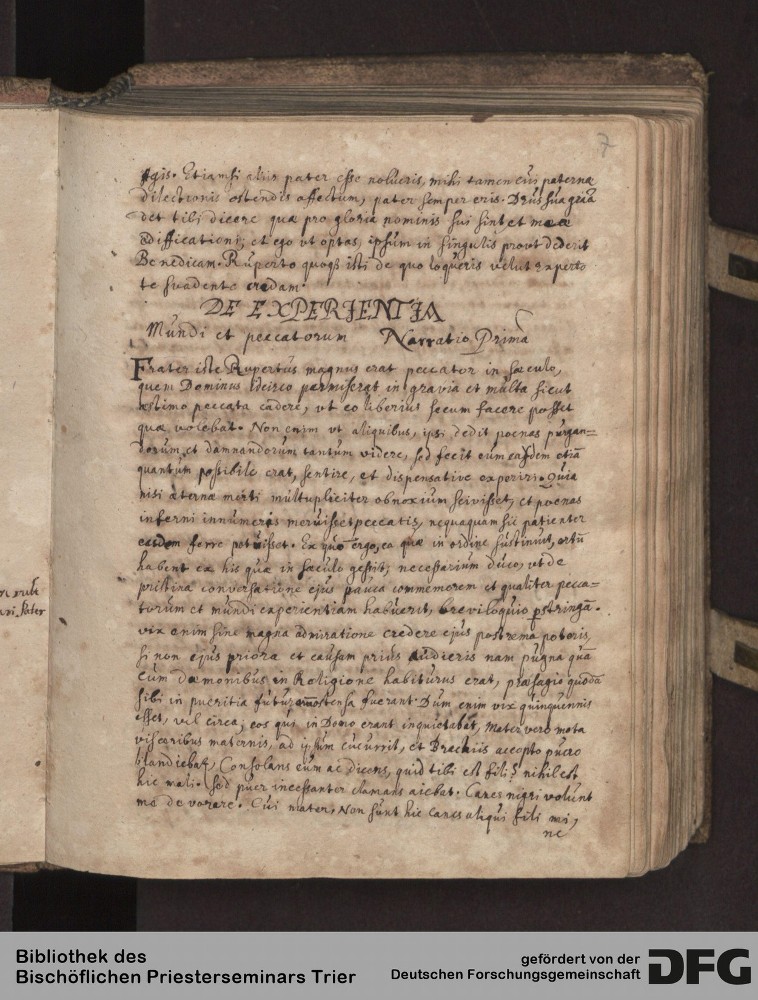 7
gis. Etiamsi alijs pater esse nolueris, mihi tamen cui paternæ
dilectionis ostendis affectum, pater semper eris. Deus sua grãa
det tibi dicere quæ pro gloria nominis sui sint et meæ
ædifficationi; et ego vt optas, ipsum in singulis provt dederit
Benedicam. Ruperto quoqȝ isti de quo loqueris velut experto
te suadente credam.
DE EXPERIENTIA
Mundi et peccatorum Narratio Prima
Frater iste Rupertus magnus erat peccator in sæculo,
quem Dominus idcirco permiserat in gravia et multa sicut
æstimo peccata cadere, vt eo liberius secum facere posset
quæ volebat. Non enim vt aliquibus, ipsi dedit poenas purgan=
dorum et damnandorum tantum videre, sed fecit eum easdem etiã
quantum possibile erat, sentire, et dispensative experiri. Quia
nisi æternæ morti multupliciter obnoxium scivisset, et poenas
inferni innumeris meruisset peccatis, nequaquam sic patienter
easdem ferre potuisset. Ex quo ergo, ea quæ in ordine sustinuit, ortũ
habent ex his quæ in sæculo gessit, necessarium duco, vt de
pristina conversatione ejus pauca commemorem et qualiter pecca=
torum et mundi experientiam habuerit, breviloquio pstringã.
vix enim sine magna admiratione credere ejus postrema poteris,
si non ejus priora et causam prius audieris nam pugna quã
cum dæmonibus in Religione habiturus erat, præsagio quodã
sibi in pueritia futura ostensa fuerant. Dum enim vix quinquennis
esset, vel circa, eos qui in Domo erant inquietabat, Mater vero mota
visceribus maternis, ad ipsum cucurrit, et Brachiis accepto puero
blandiebat, Consolans eum ac dicens, quid tibi est fili? nihil est
hic mali. Sed puer incessanter clamans aiebat. Canes nigri volunt
me devorare. Cui mater, Non sunt hic canes aliqui fili mi,
ne
Bibliothek des
Bischöflichen Priesterseminars Trier
gefördert von der
Deutschen Forschungsgemeinschaft
DFG